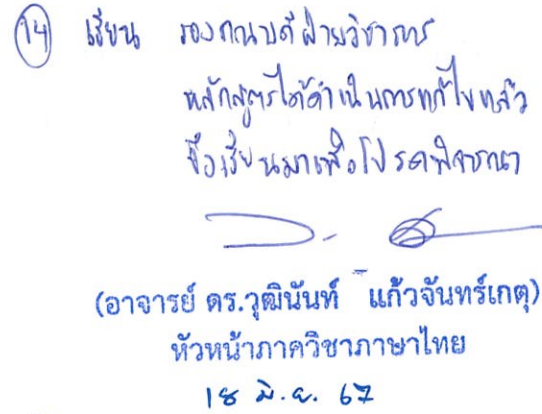 14 เรียน รองคณบดีฝ่ายวิชาการ
หลักสูตรได้ดำเนินการแก้ไขแล้ว
จึงเรียนมาเพื่อโปรดพิจารณา
(อาจารย์ ดร.วุฒินันท์ แก้วจันทร์เกตุ)
หัวหน้าภาควิชาภาษาไทย
18 มิ.ย. 67